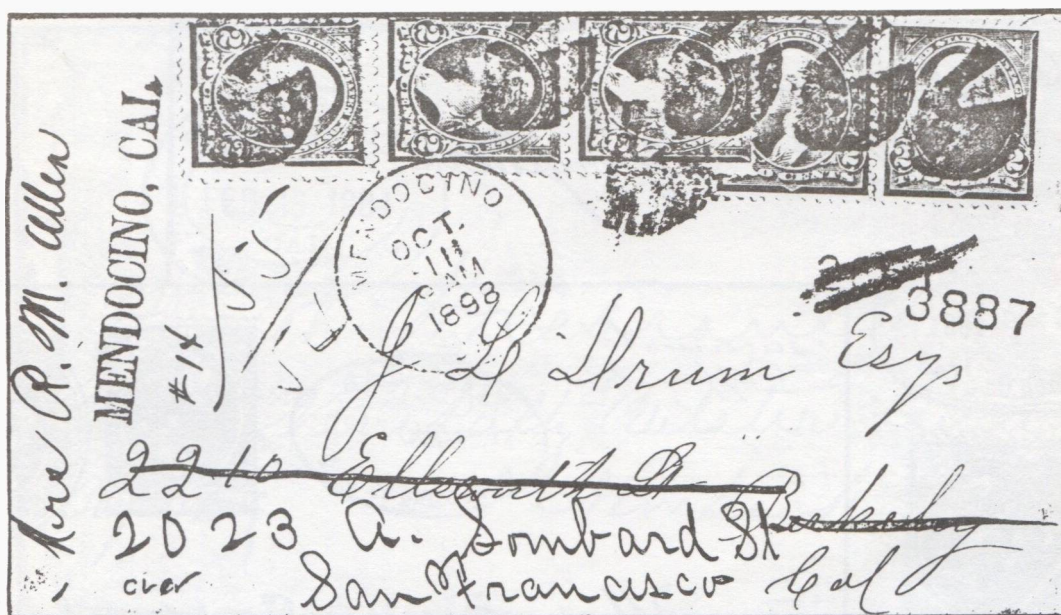 Mrs P. M. Allen
MENDOCINO, CAL.
#14
MENDOCINO
OCT.
1898
3887
J G Drum Esq
2210 Ellsworth St Berkeley
2023 A. Lombard St
San Francisco Cal
over